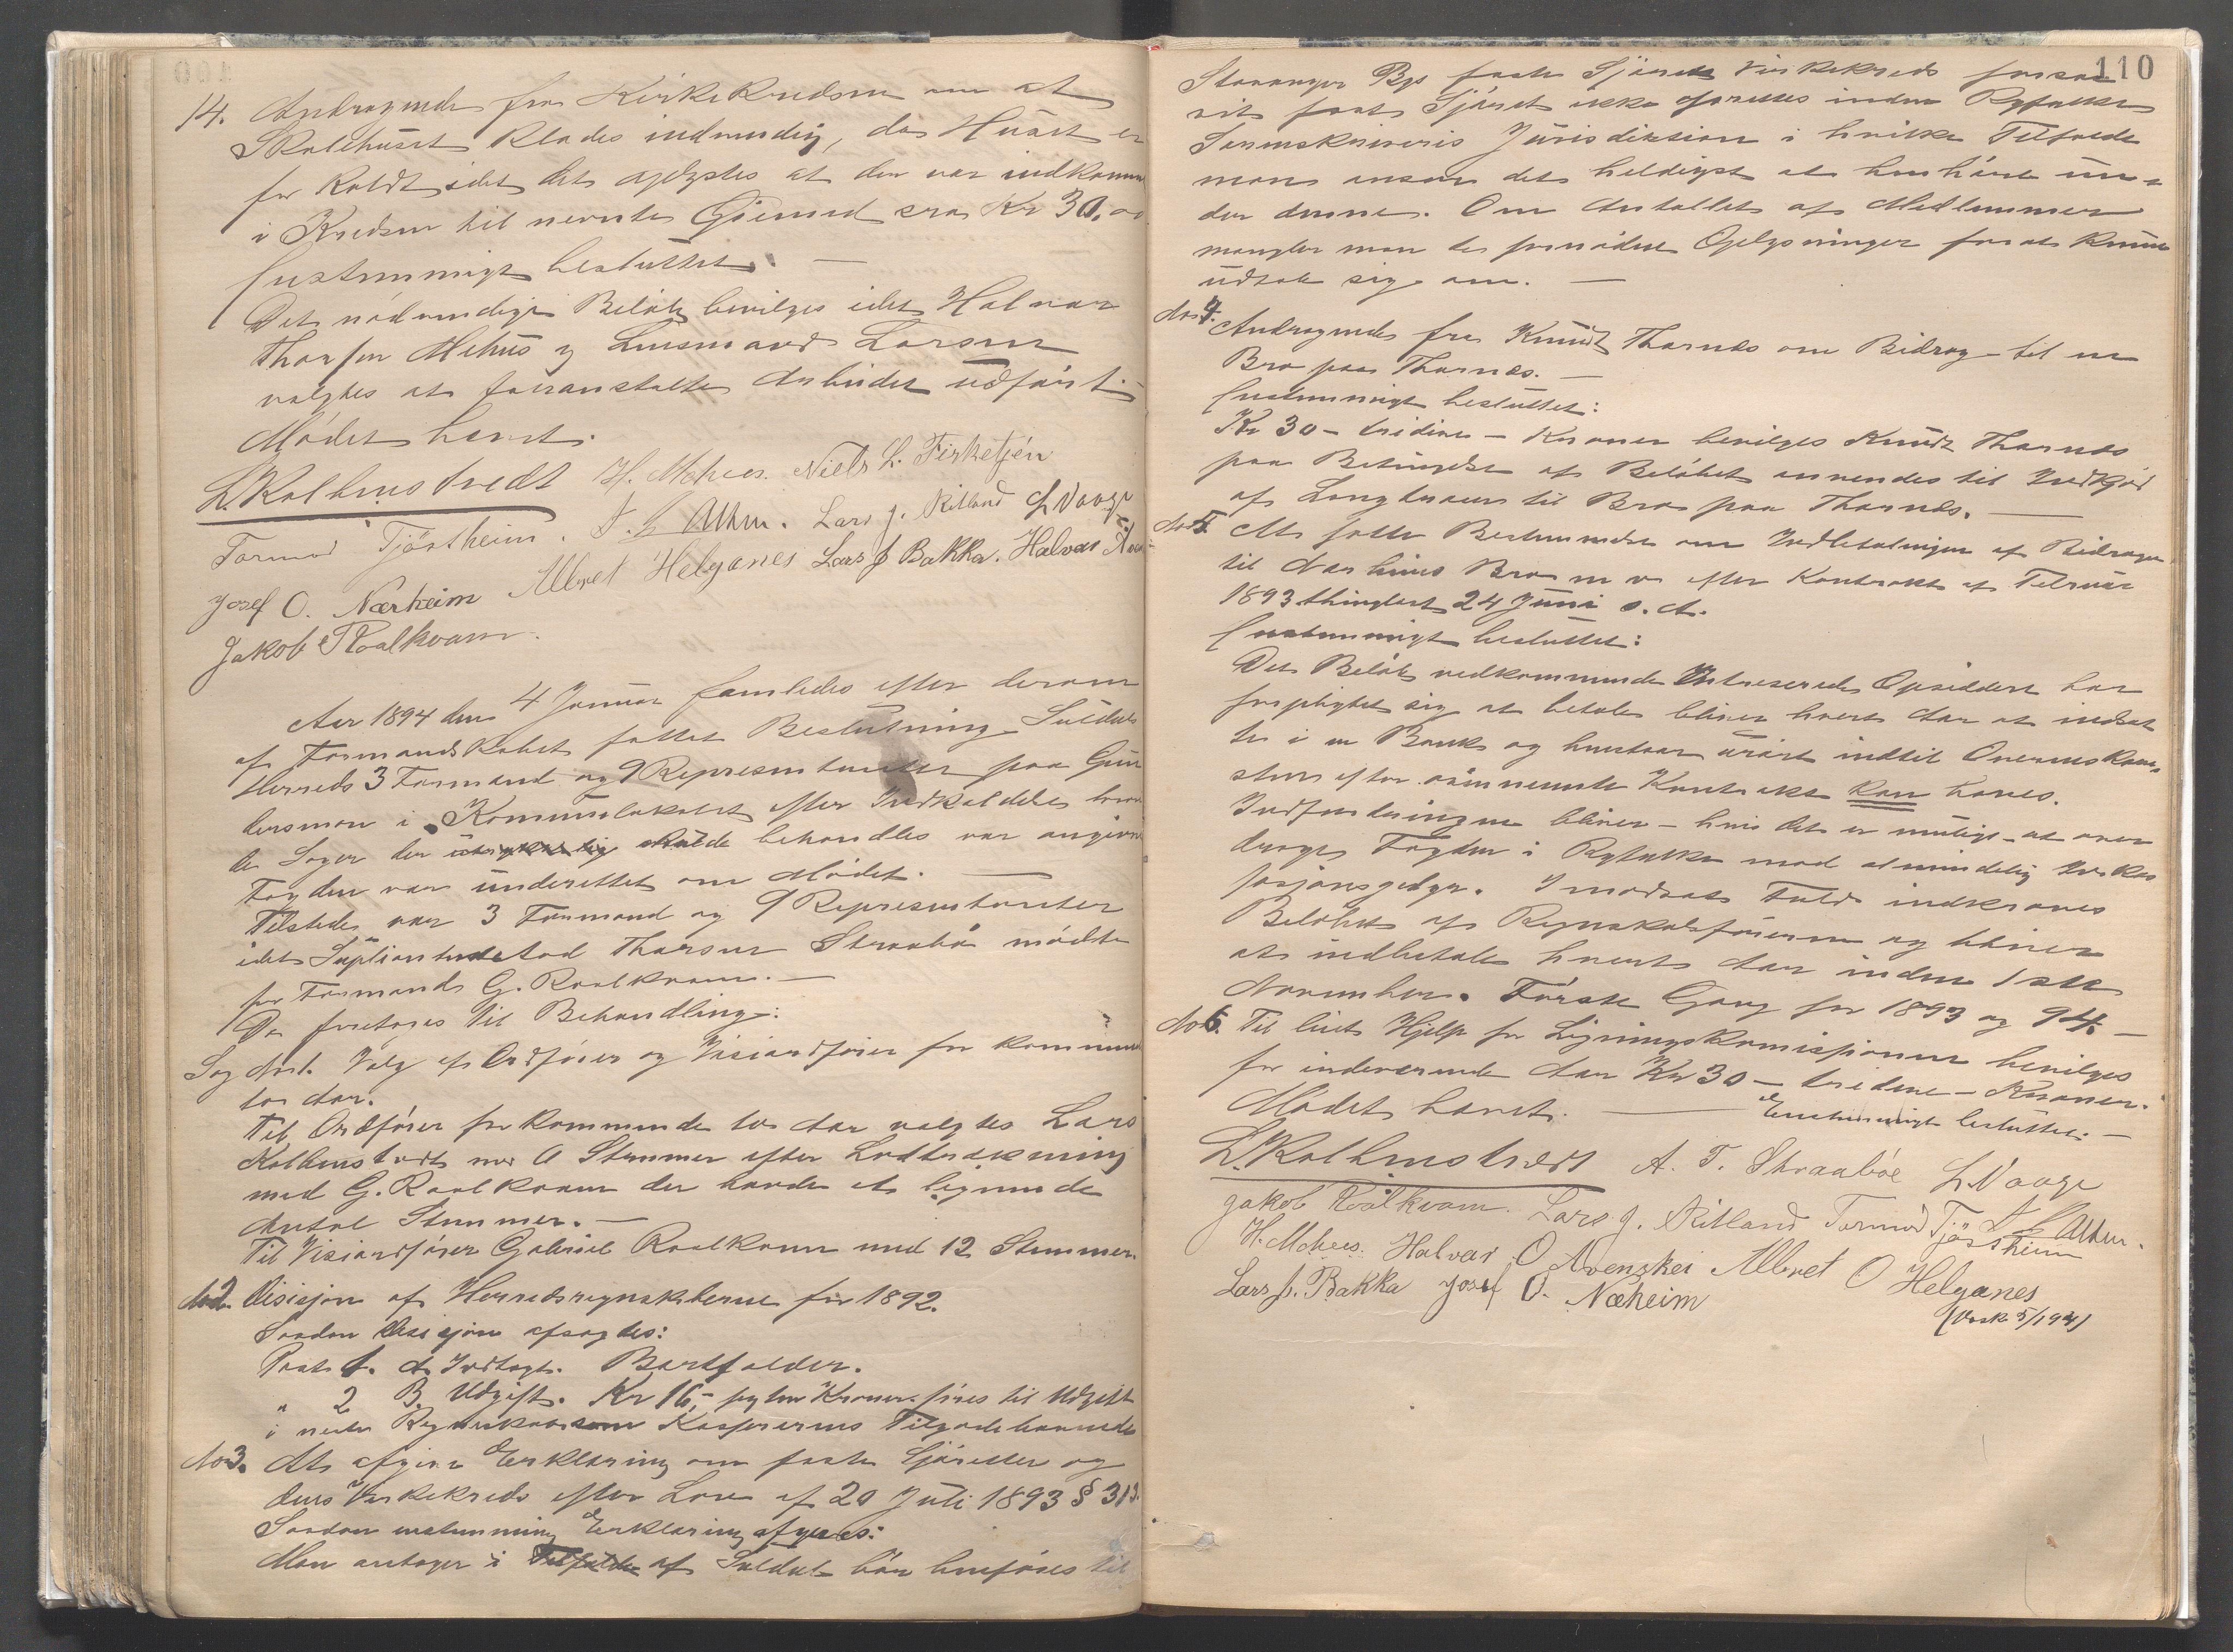 14. Andragende fra Kirkekredsen om at
Skolehuset klædes indvendig, da Huset er
for koldt idet det oplystes at der var indkommet
i Kredsen til nevnte Øiemed cra Kr 30,00
Enstemmigt besluttet. —
Det nødvendige Beløb bevilges idet Halvar
Thorsen Mehus og Lensmand Larsen
valgtes at foranstalte Arbeidet udført. —
Mødet hævet.
L. Kolbenstvedt H. Mehus. Niels L. Fisketjøn
Tormod Tjøstheim. Lars J. Ritland L Vaage
Josef O. Nærheim Albret Helganes Lars J Bakka. Halvar
Jakob Roalkvam.
Aar 1894 den 4 Januar samledes efter derom
af Formandskabet fattet Beslutning Suldals
Herreds 3 Formænd og 9 Representanter paa
i Kommunelokalet efter Indkaldelse hvor
de Sager der skulde behandles var angivne
Fogden var underettet om Mødet. —
Tilstede var 3 Formænd og 9 Representanter
idet Suppliant Thorsen Straabø mødte
for Formand G. Roalkvam. —
Da foretages til Behandling:
Sag No 1. Valg af Ordfører og Viseordfører for kommende
to Aar.
Til Ordfører for kommende to Aar valgtes Lars
Kolbenstvedt med 6 Stemmer efter Lodtrækning
med G. Roalkvam der havde et lignende
Antal Stemmer. —
Til Viseordfører Gabriel Roalkvam med 12 Stemmer
No 2. Desisjon af Herredsregnskaberne for 1892.
Saadan Desisjon afsagdes:
Post 1. A Indtægt. Bortfalder.
" 2 B. Udgift. Kr 16,- seksten Kroner føres til Udgift
i neste Regnskab som Kassererens Tilgodehavende
No 3. At afgive Erklæring om faste Sjøretter og
deres Virkekreds efter Lov af 20 Juli 1893 § 313.
Saadan enstemmig Erklæring afgives:
Man antager i Tilfælde af Suldal bør henføres til
110
Stavanger Bys faste Sjørets Virkekreds forsaa-
vit fast Sjøret ikke oprettes inden Ryfylke
Sorenskriveris Jurisdiktion i hvilke Tilfælde
man anser det heldigst at henhøre un-
der denne. Om Antallet af Medlemmer
mangler man de fornødne Oplysninger for at kunne
udtale sig om. —
No 4. Andragende fra Knudt Thornes om Bidrag til en
Bro paa Thornes. —
Enstemmigt besluttet:
Kr 30 - tredive - Kroner bevilges Knudt Thornes
paa Betingelse af Beløbet anvendes til Indkjøb
af Langtræer til Bro paa Thornes. —
No 5. At fatte Bestemmelse om Indbetalingen af Bidragene
til Bro m v efter Kontrakt af Februar
1893 thinglæst 24 Juni s. A.
Enstemmigt besluttet:
Det Beløb vedkommende Intreserede Opsiddere har
forpligtet sig at betale bliver hvert Aar at indsæt
te i en Bank og henstaar urørt indtil Overenskom-
sten efter ovennevnte Kontrakt kan haves.
Indfordringen bliver - hvis det er muligt - at over
drages Fogden i Ryfylke mod almindelig Inkas
sasjonsgebyr. I modsat Fald indkræves
Beløbet af Regnskabsføreren og bliver
at indbetale hvert Aar inden 1ste
November. Første Gang for 1893 og 94. —
No 6. Til leiet Hjelp for Ligningskomissionen bevilges
for indeværende Aar Kr 30 - tredive - Kroner.
Enstemmigt besluttet. —
Mødet hævet. —
L. Kolbenstvedt A. T. Straabøe L Vaage
Jakob Roalkvam. Lars J. Ritland Tormod Tjøstheim
H. Mehus. Halvar O Kvenskei Albret O Helganes
Lars J. Bakka Josef O. Næheim